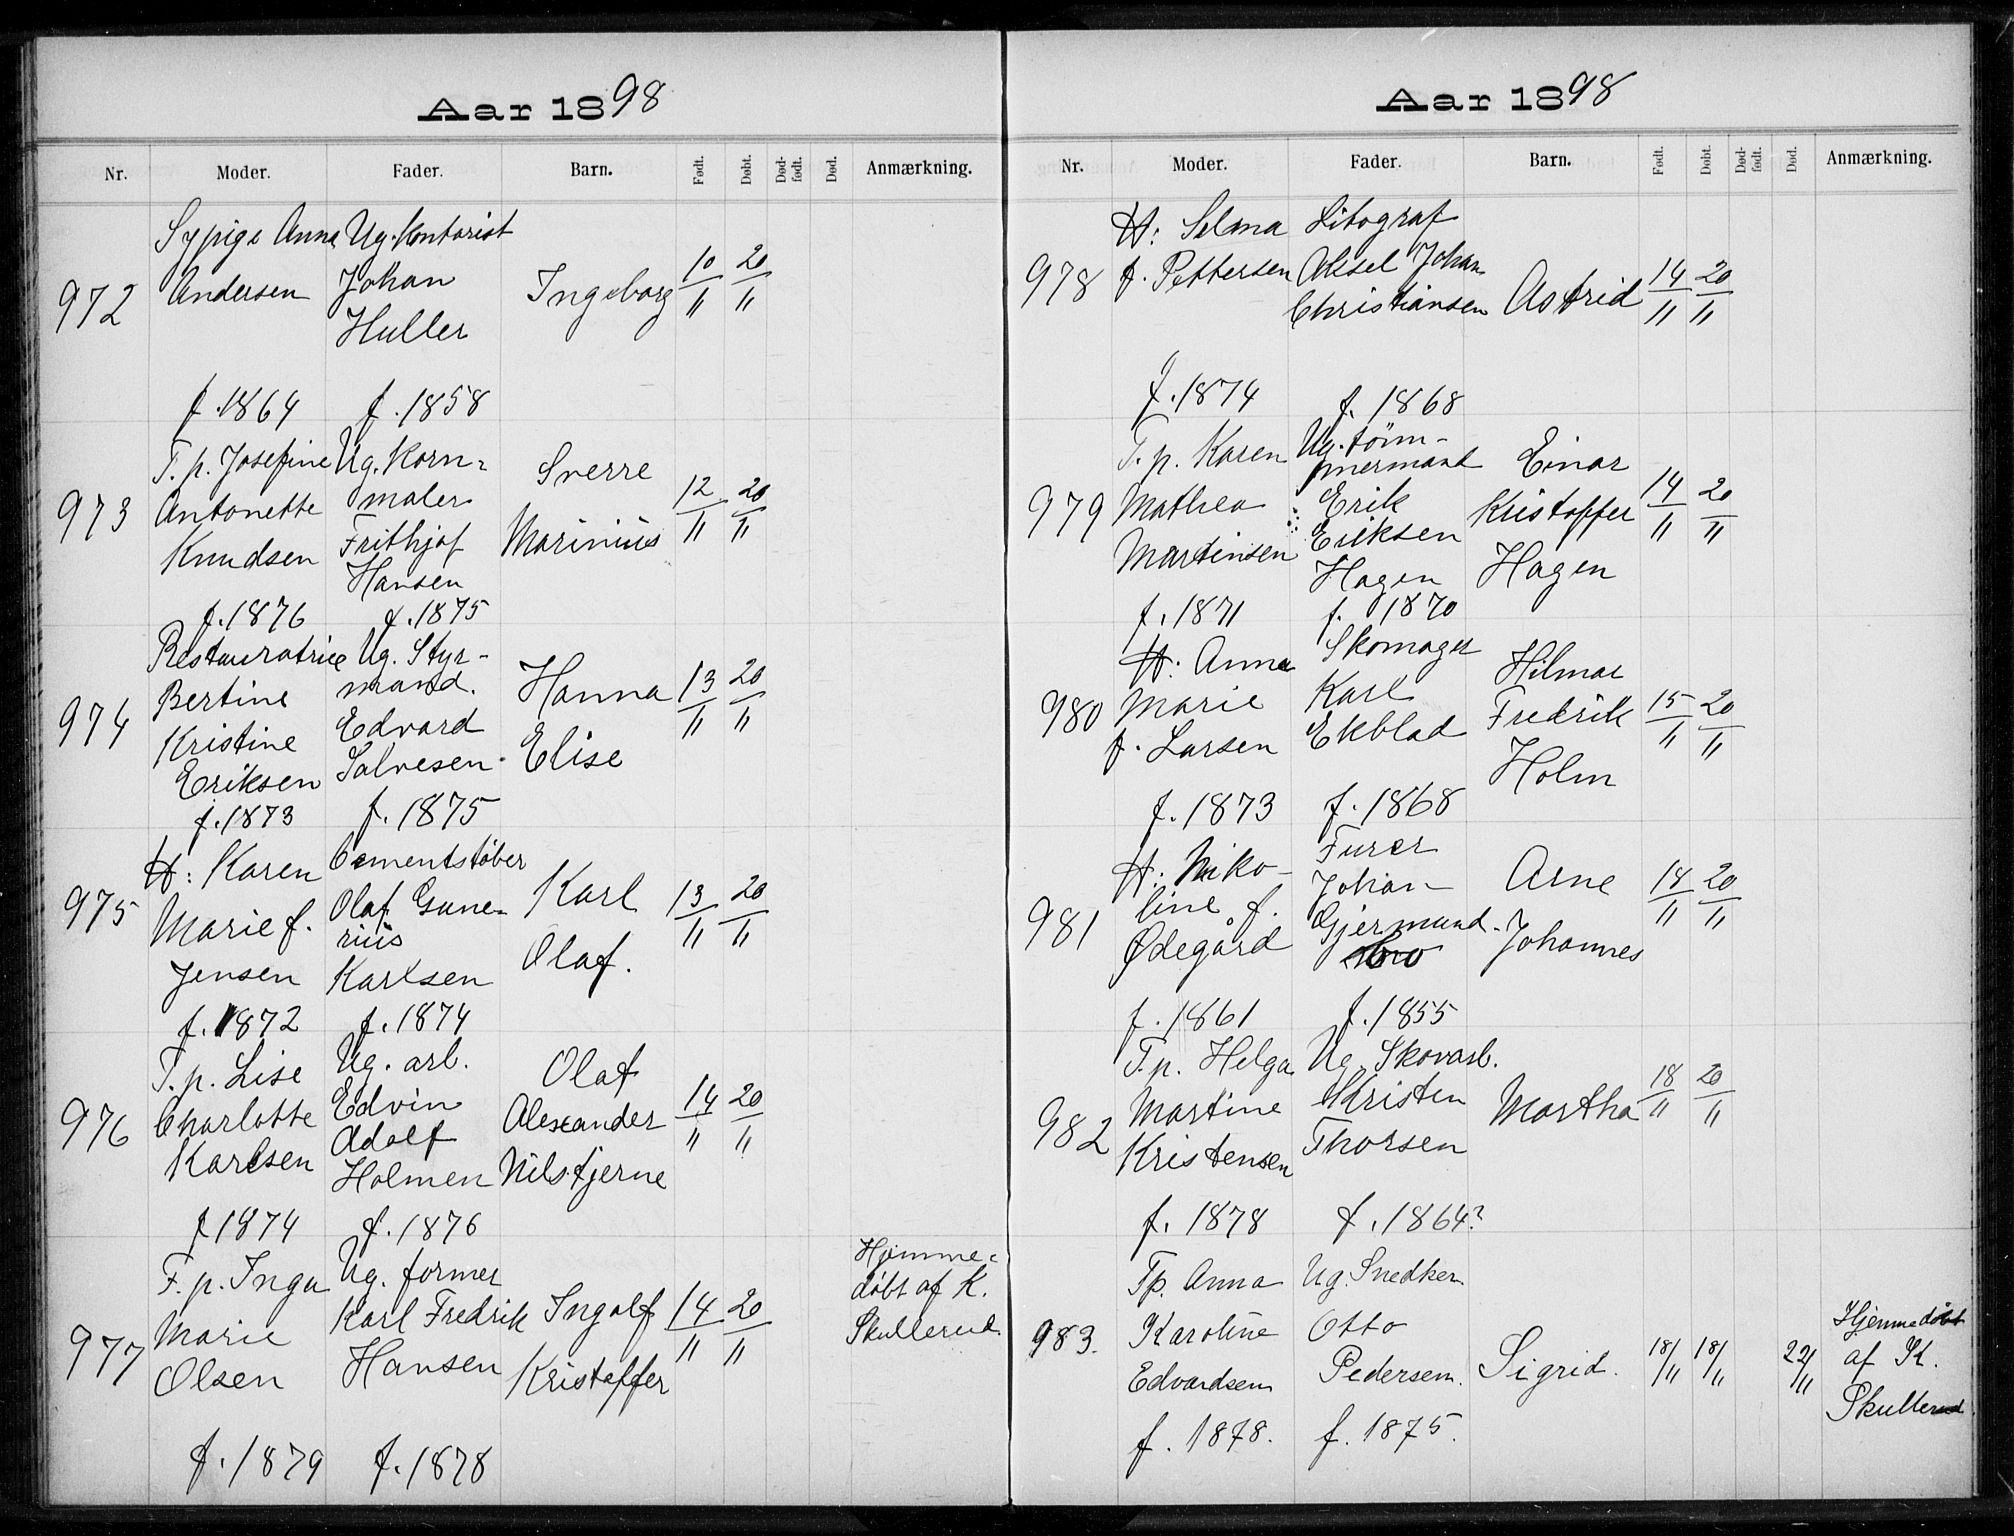 Aar 1898
Nr. Moder. Fader. Barn. Født. Døbt. Død-født. Død. Anmærkning.
Sypige Anna Ug. Kontorist
972 Andersen Johan Ingeborg 10/11 20/11
Huller
f. 1864 f. 1858
T. p. Josefine Ug. Korn-
973 Antonette maler Sverre 12/11 20/11
Knudsen Frithjof Marinius
Hansen
f. 1876 f. 1875
Restauratrice Ug. Styr-
974 Bertine mand. Hanna 13/11 20/11
Kristine Edvard
Eriksen Salvesen. Elise
f. 1873 f. 1875
H: Karen Cementstøber
975 Marie f. Olaf Gune- Karl 13/11 20/11
rius
Jensen Karlsen Olaf.
f. 1872 f. 1874
T. p. Lise Ug. arb. Olaf
976 Charlotte Edvin Alexander 14/11 20/11
Adolf
Karlsen Holmen Nilstjerne
f 1874 f. 1876
F. p. Inga Ug. former Hjemme-
døbt af K.
977 Marie Karl Fredrik Ingolf 14/11 20/11 Skullerud.
Olsen Hansen Kristoffer
f. 1879 f. 1878
Aar 1898
Nr. Moder. Fader. Barn. Født. Døbt. Død-født. Død. Anmærkning.
H: Selma Litograf
978 f. Pettersen Aksel Johan
Christiansen Astrid 14/11 20/11
f. 1874 f. 1868
T. p. Karen Ug. tøm-
mermand Einar
979 Mathea Erik Kristoffer 14/11 20/11
Martinsen Eriksen
Hagen Hagen
f. 1871 f. 1870
H: Anna Skomager Hilmar
980 Marie Karl Fredrik 15/11 20/11
f. Larsen Ekblad
Holm
f. 1873 f. 1868
H: Niko- Furer
line f. Johan Arne 14/11 20/11
981 Ødegård Gjermund- Johannes
bro
f. 1861 f. 1855
T. p. Helga Ug. Skovarb.
982 Martine Kristen Martha 18/11 20/11
Kristensen Thorsen
f. 1878 f. 1864?
Tp. Anna Ug. Snedker.
983. Karoline Otto Hjemmedøbt
Edvardsen Pedersen. Sigrid. 18/11 18/11 22/11 af K.
Skullerud
f. 1878. f. 1875.